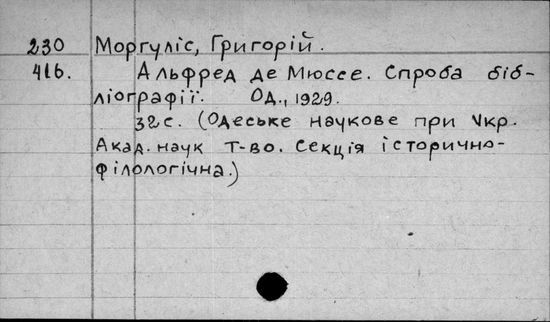 230 Моргуліс, Григорій.
416. Альфред де Мюссе. Спроба біб-
ліографії. Од., 1929.
32с. (Одеське наукове при Укр.
Акад. наук т-во. Секція історично-
філологічна.)